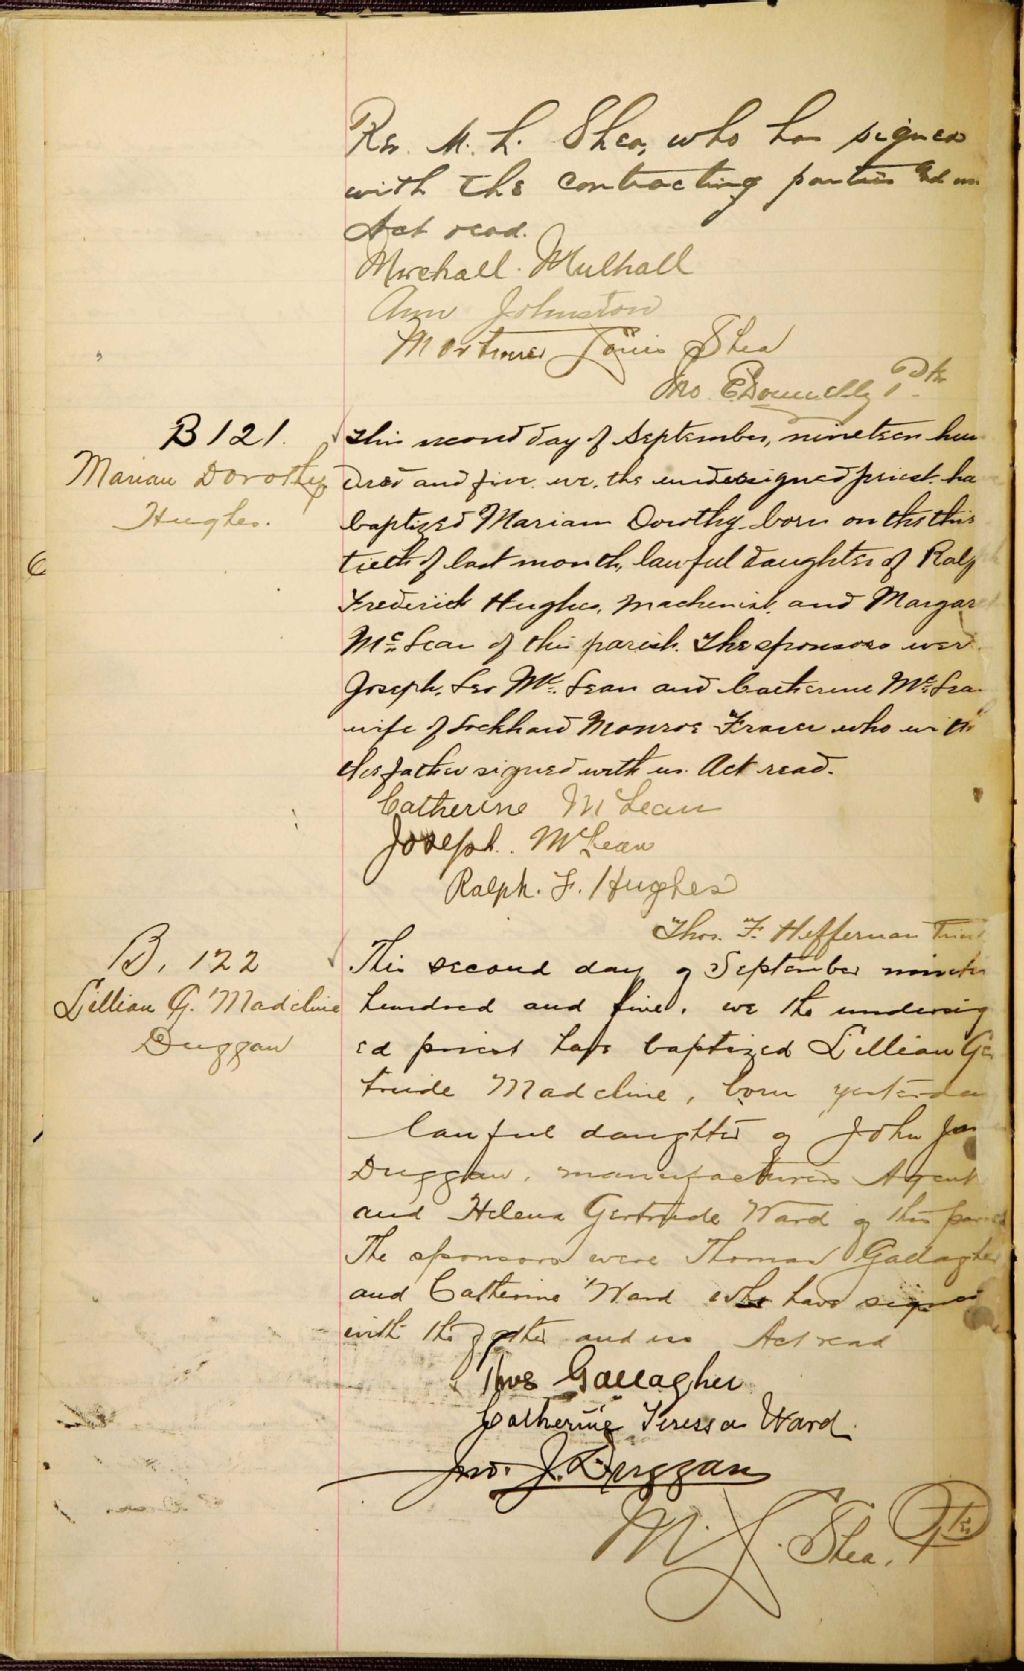 Rev. M. L. Shea, who has signed
with the contracting parties and us
Act read.
Michall Mulhall
Ann Johnston
Mortimer Louis Shea
Jno. E. Donnelly Ptr.
B 121.
Marian Dorothy
Hughes.
This second day of September, nineteen hun
dred and five we, the undersigned priest ha
baptized Mariam Dorothy born on the thir
tieth of last month, lawful daughter of Ralp
Frederick Hughes, machinist, and Margar
McLean of this parish. The sponsors wer
Joseph Leo McLean and Catherine McLea
wife of Lockhard Monroe Fraser who with
the father signed with us. Act read.
Catherine McLean
Joseph McLean
Ralph. F. Hughes
Thos. F. Heffernan
B. 122
Lillian G. Madeline
Duggan
This second day of September ninetee
hundred and five, we the undersig
ed priest have baptized Lillian Ger
trude Madeline, born yesterda
lawful daughter of John
Duggan, manufacturers Agent
and Helena Gertrude Ward of this parish
The sponsors were Thomas Gallagher
and Catherine Ward who have signed
with the father and us Act read
Thos Gallagher
Catherine Teressa Ward.
Jno. J. Duggan
M. L. Shea, Ptr.